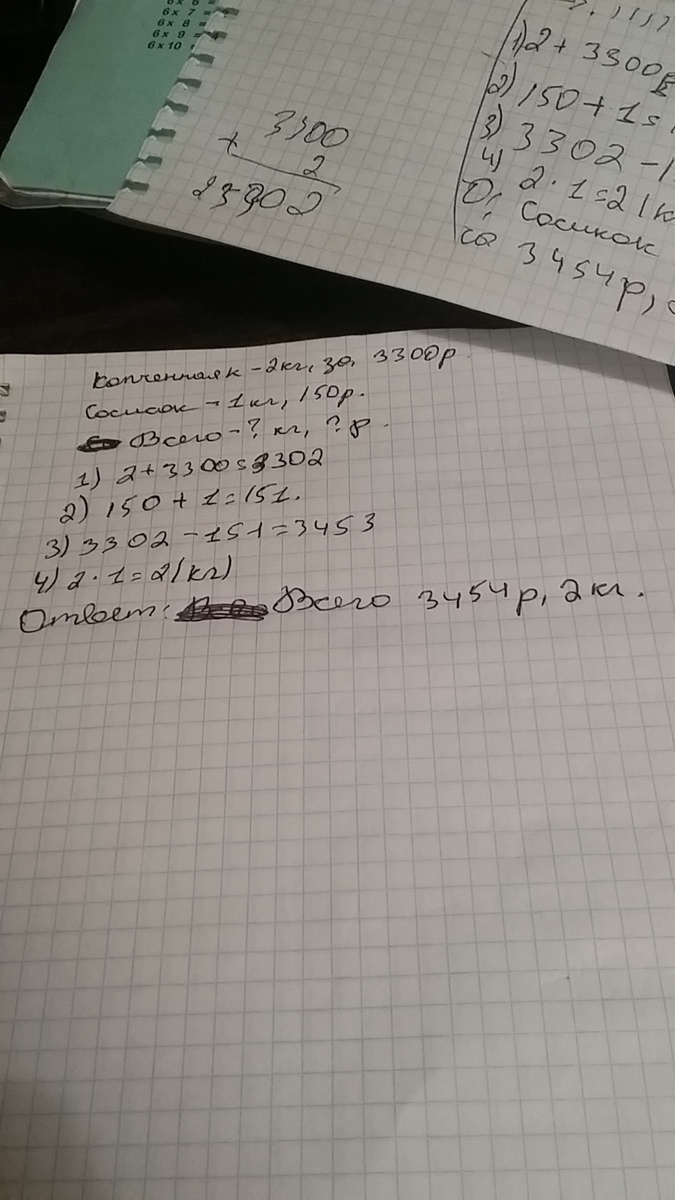 6 x 7 =
6 x 8 =
6 x 9 =
6 x 10 =
3300
+
2
23302
1) 2 + 3300
2) 150 + 1 =
3) 3302 -
4) 2 · 1 = 2 (к
О: Сосикок
со 3454 р,
Копченная к - 2 кг, за, 3300р
Сосисок - 1 кг, 150р.
Всего - ? кг, ? р.
1) 2 + 3300 = 3302
2) 150 + 1 = 151.
3) 3302 - 151 = 3453
4) 2 · 1 = 2 (кг)
Ответ: Всего 3454 р, 2 кг.